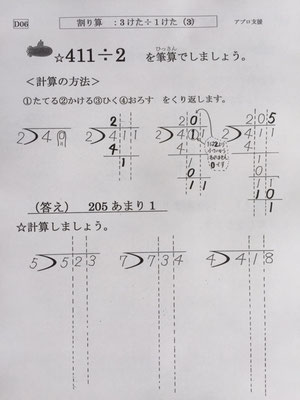 D06 割り算 :3けた÷1けた (3) アプロ支援
☆411÷2 を筆算でしましょう。
ひっさん
<計算の方法>
①たてる②かける③ひく④おろす をくり返します。
2 20 205
2)4 2)411 2)411 2)411
4 4 4
1 1 11
0 0
11 11
10
1
(答え) 205 あまり 1
☆計算しましょう。
5)523 7)734 4)418